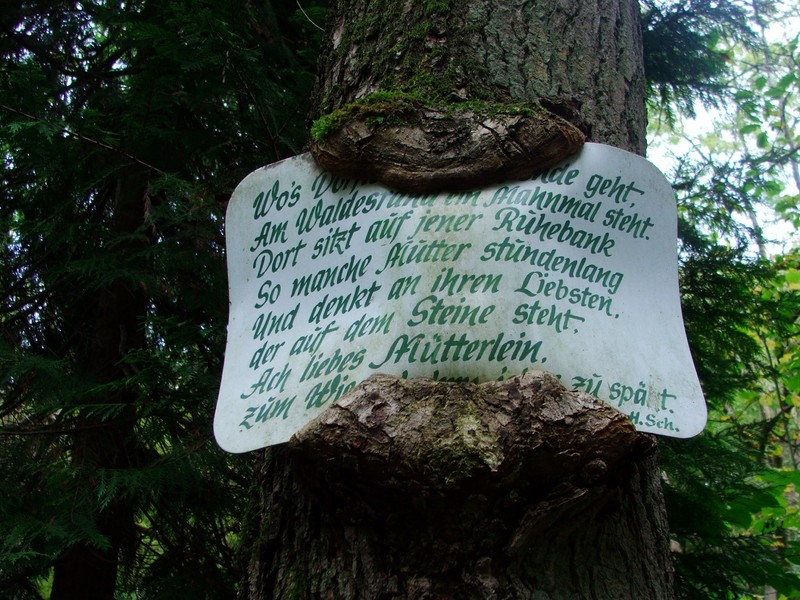 Wo's Dor nde geht,
Am Waldesrand ein Mahnmal steht.
Dort sitzt auf jener Rühebank
So manche Mütter stündenlang
Ünd denkt an ihren Liebsten,
der auf dem Steine steht,
Ach liebes Mütterlein,
zŭm Wie zŭ spät.
H. Sch.